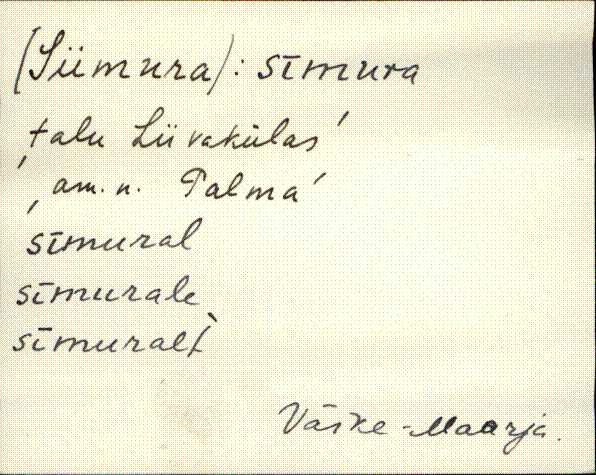 (Siimura): sīmura
'talu Liivakülas'
'am. n. Palma'
sīmural
sīmurale
sīmuralt̀
Väike-Maarja.